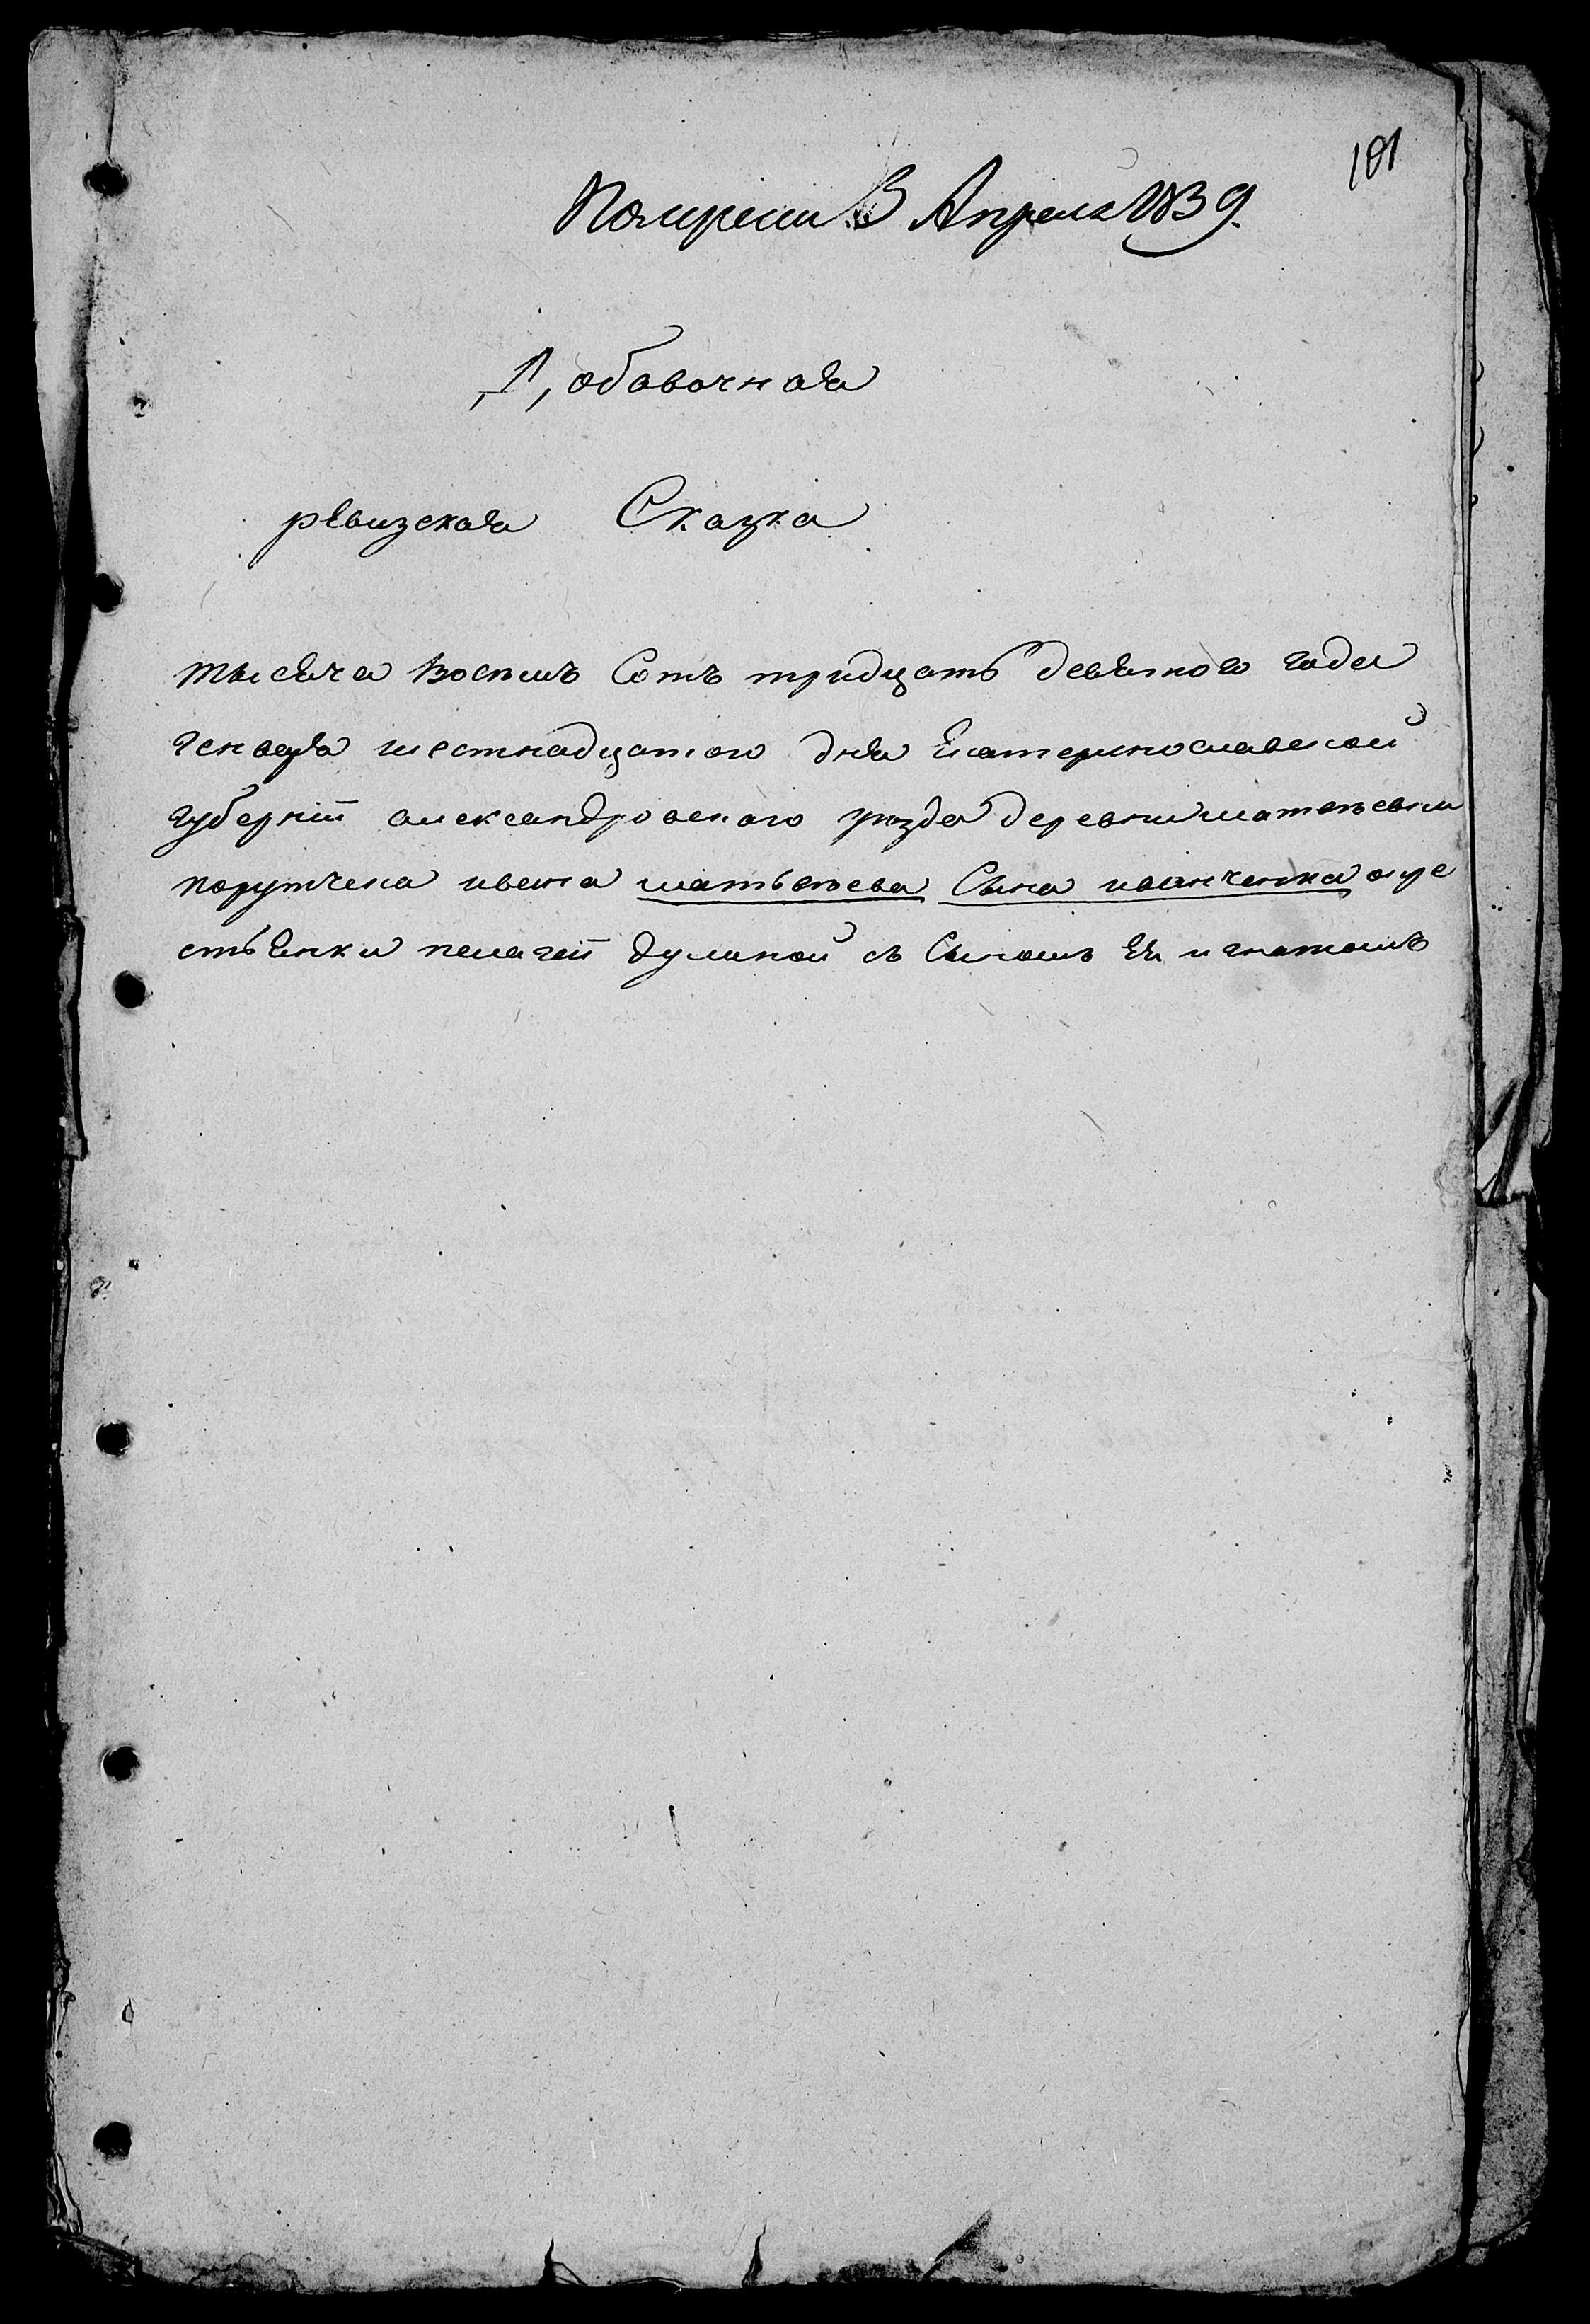 101
3 Апреля 1839.
Добавочная
ревизская Сказка
тысяча восемъ Сотъ тридцать девятого года
генваря шестнадцатого дня Екатеринославской
губернiи александровского уезда деревни матвеевки
порутчика ивана матвеева Сына иванченка окре
стьянки пелагеи дулиной съ Сыномъ Ея игнатомъ